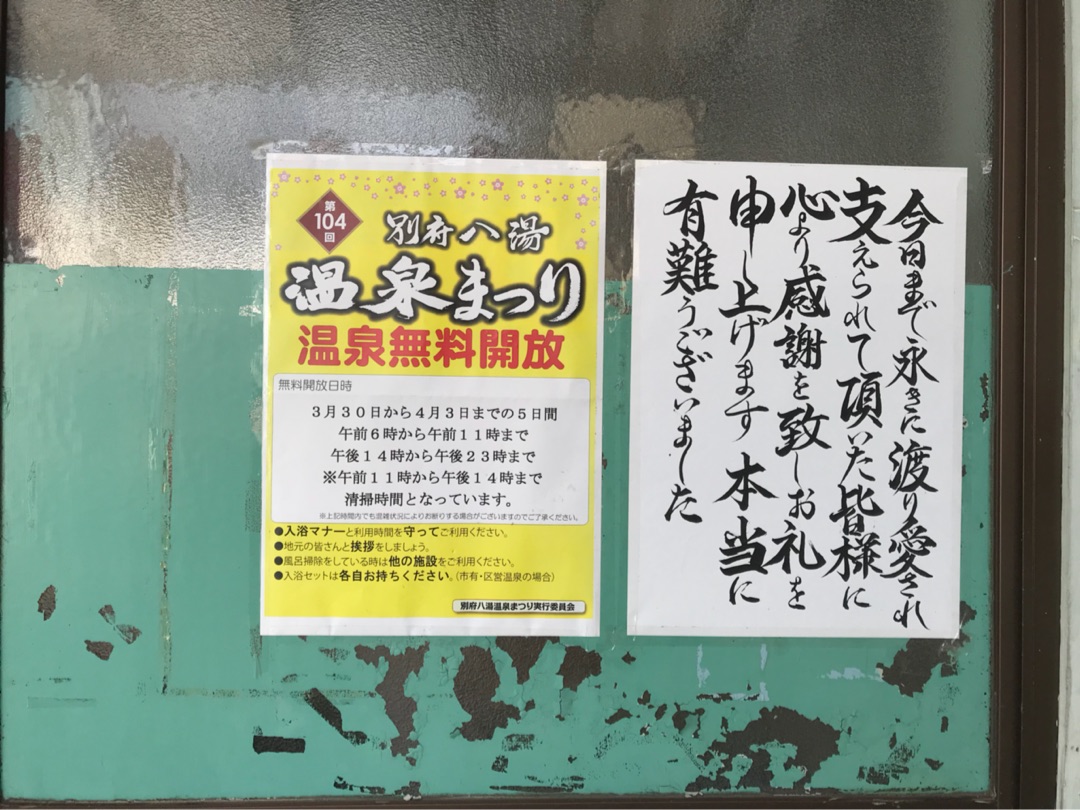 第
104
回
別府八湯
温泉まつり
温泉無料開放
無料開放日時
３月３０日から４月３日までの５日間
午前６時から午前１１時まで
午後１４時から午後２３時まで
※午前１１時から午後１４時まで
清掃時間となっています。
※上記時間内でも混雑状況によりお断りする場合がございますのでご了承ください。
●入浴マナーと利用時間を守ってご利用ください。
●地元の皆さんと挨拶をしましょう。
●風呂掃除をしている時は他の施設をご利用ください。
●入浴セットは各自お持ちください。（市有・区営温泉の場合）
別府八湯温泉まつり実行委員会
今日まで永きに渡り愛され
支えられて頂いた皆様に
心より感謝を致しお礼を
申し上げます本当に
有難うございました